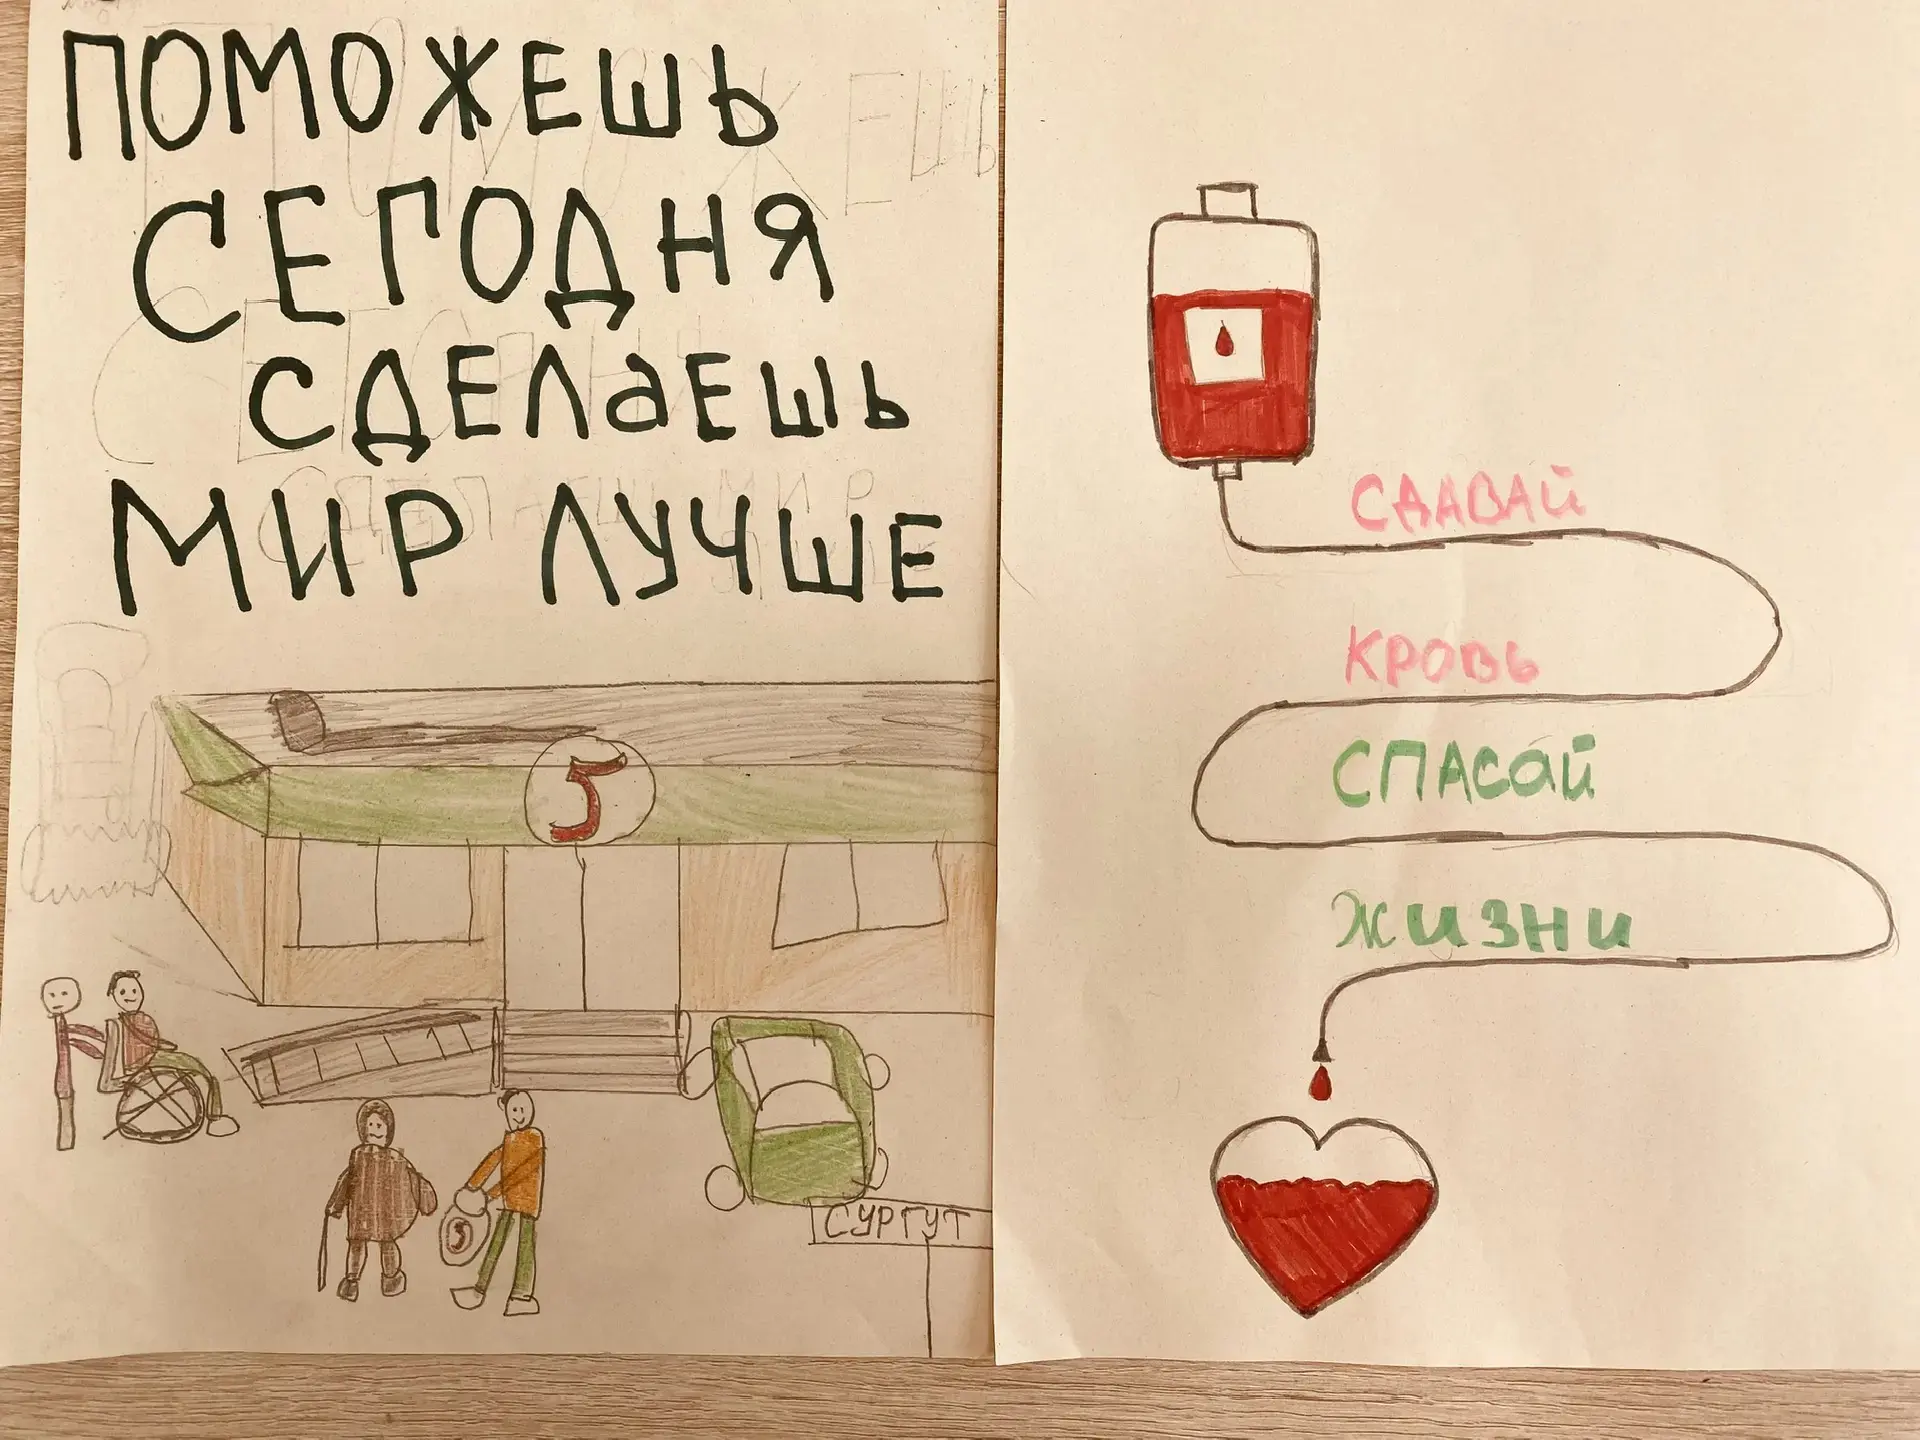 ПОМОЖЕШЬ
СЕГОДНЯ
СДЕЛаЕШЬ
МИР ЛУЧШЕ
5
5
СУРГУТ
СДАВАЙ
КРОВЬ
СПАСАЙ
ЖИЗНИ